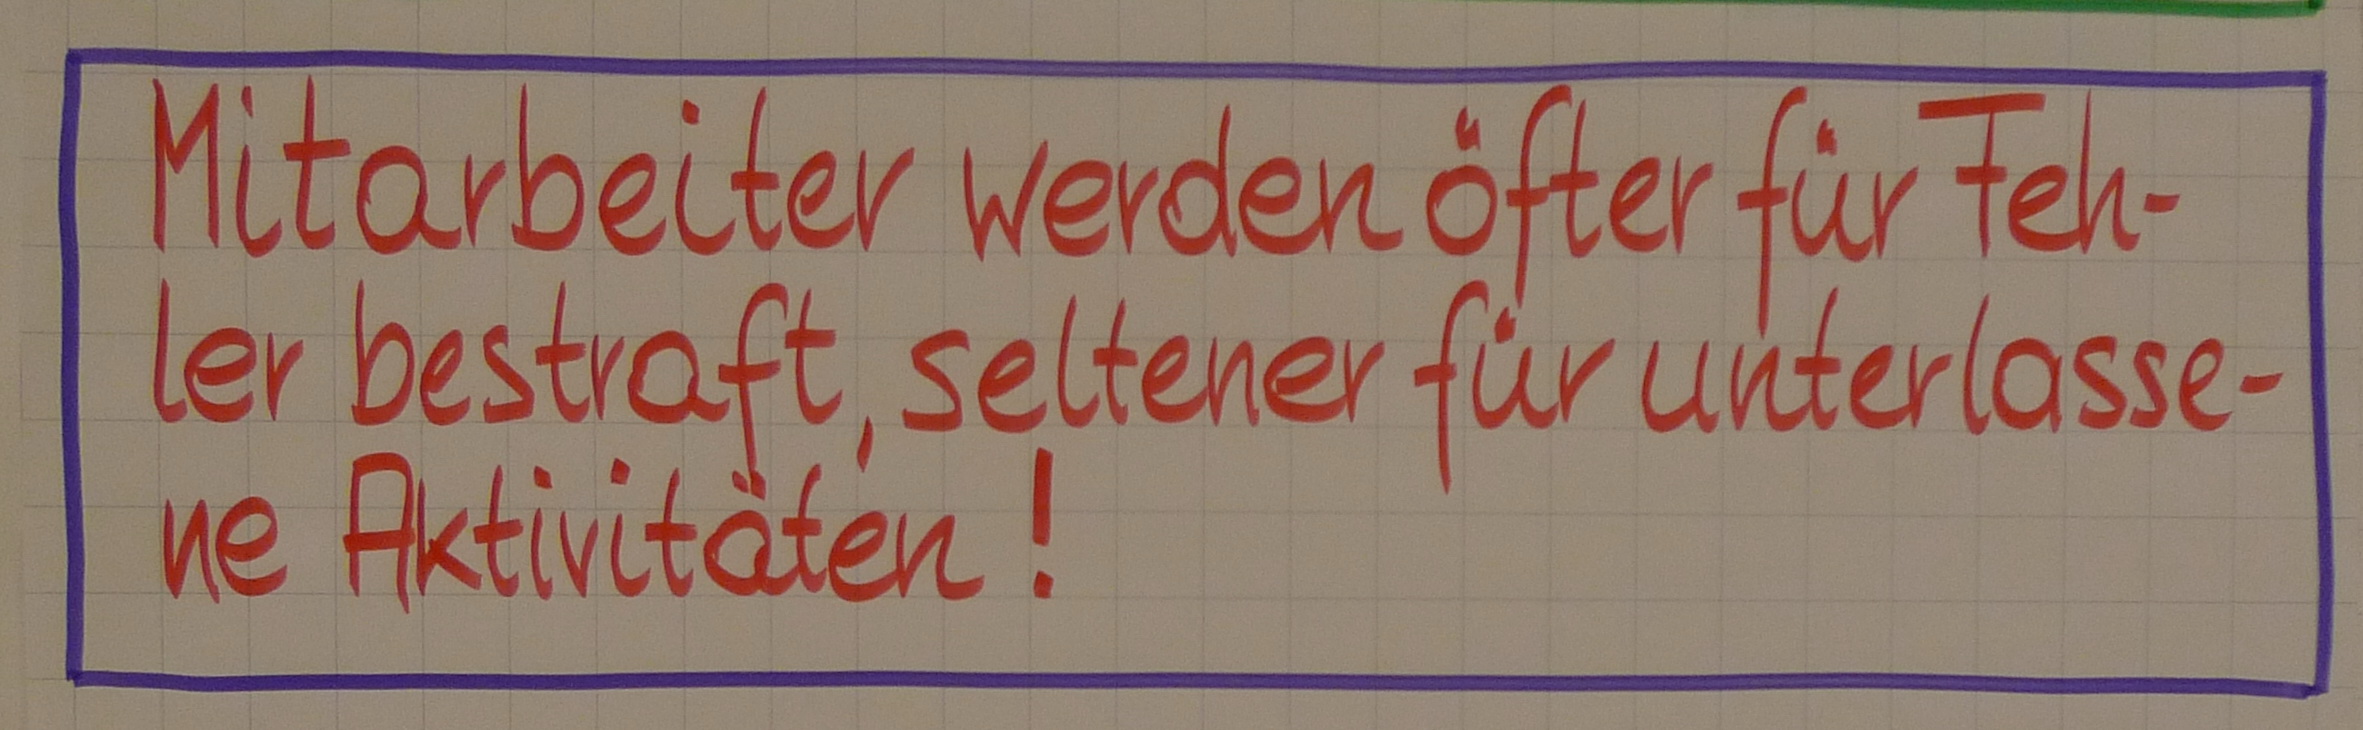 Mitarbeiter werden öfter für Feh-
ler bestraft, seltener für unterlasse-
ne Aktivitäten!